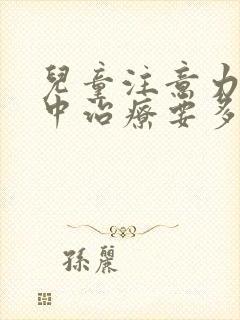 兒童注意力
中治療要多
孫麗